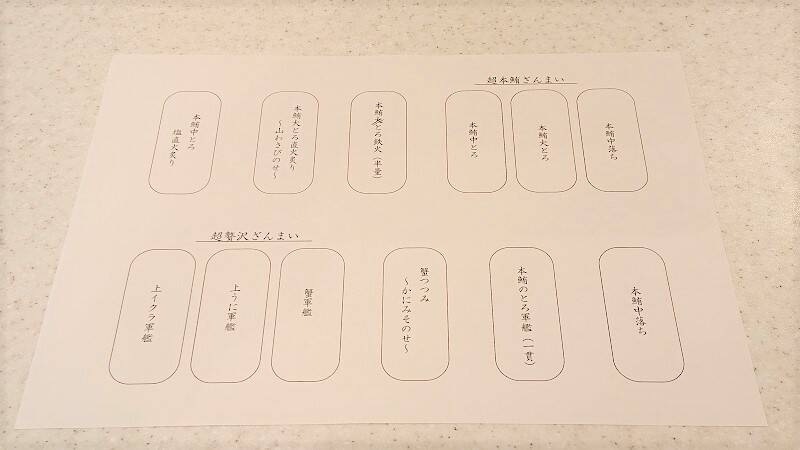 超本鮪ざんまい
本鮪中落ち
本鮪大とろ
本鮪中とろ
本鮪大とろ鉄火（半量）
本鮪大とろ直火炙り
～山わさびのせ～
本鮪中とろ
塩直火炙り
本鮪中落ち
本鮪のとろ軍艦（一貫）
蟹つつみ
～かにみそのせ～
超贅沢ざんまい
蟹軍艦
上うに軍艦
上イクラ軍艦